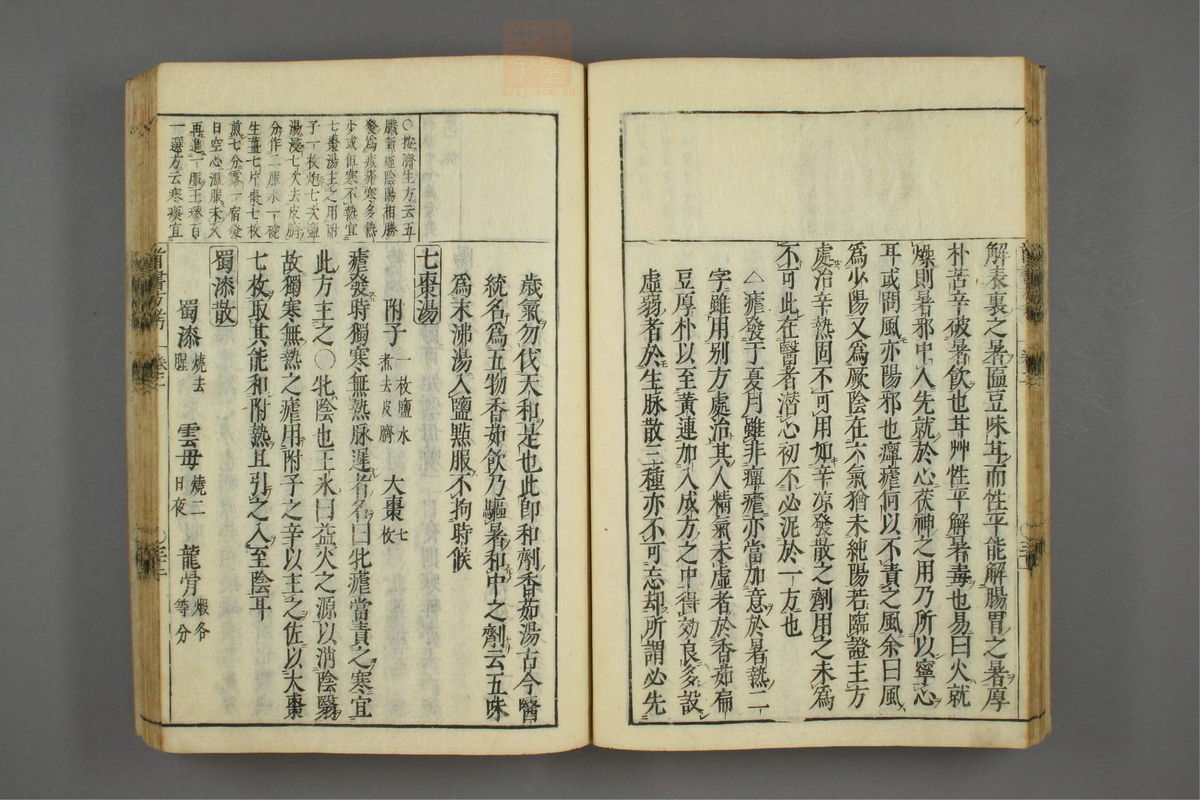 解表裏之暑匾豆味甘而性平能解腸胃之暑厚
朴苦辛破暑飲也甘艸性平解暑毒也易曰火就
燥則暑邪中人先就於心茯神之用乃所以寧心
耳或問風亦陽邪也癉瘧何以不責之風余曰風
為少陽又為厥陰在六氣猶未純陽若臨證主方
處治辛熱固不可用如辛凉發散之劑用之未為
不可此在醫者潛心初不必泥於一方也
△瘧發于夏月雖非癉瘧亦當加意於暑熱二
字雖用别方處治其人精氣未虛者於香茹扁
豆厚朴以至黄連加入成方之中得効良多設
虛弱者於生脉散三種亦不可忘却所謂必先
歲氣勿伐天和是也此即和劑香茹湯古今醫
統名為五物香茹飲乃驅暑和中之劑云五味
為末沸湯入鹽點服不拘時候
七棗湯
附子一枚鹽水煮去皮臍 大棗七枚
瘧發時獨寒無熱脉遲者名曰牝瘧當責之寒宜
此方主之○牝陰也王氷曰益火之源以消陰翳
故獨寒無熱之瘧用附子之辛以主之佐以大棗
七枚取其能和附熱且引之入至陰耳
蜀漆散
蜀漆燒去腥 雲母燒二日夜 龍骨煆各等分
○按濟生方云五
臟氣虛陰陽相勝
發為痎瘧寒多熱
少或但寒不熱宜
七棗湯主之用附
子一枚炮七次鹽
湯浸七次去皮臍
分作二服水一碗
生薑七片棗七枚
煎七分露一宿發
日空心温服未久
再進一服王璆百
一選方云寒瘧宜